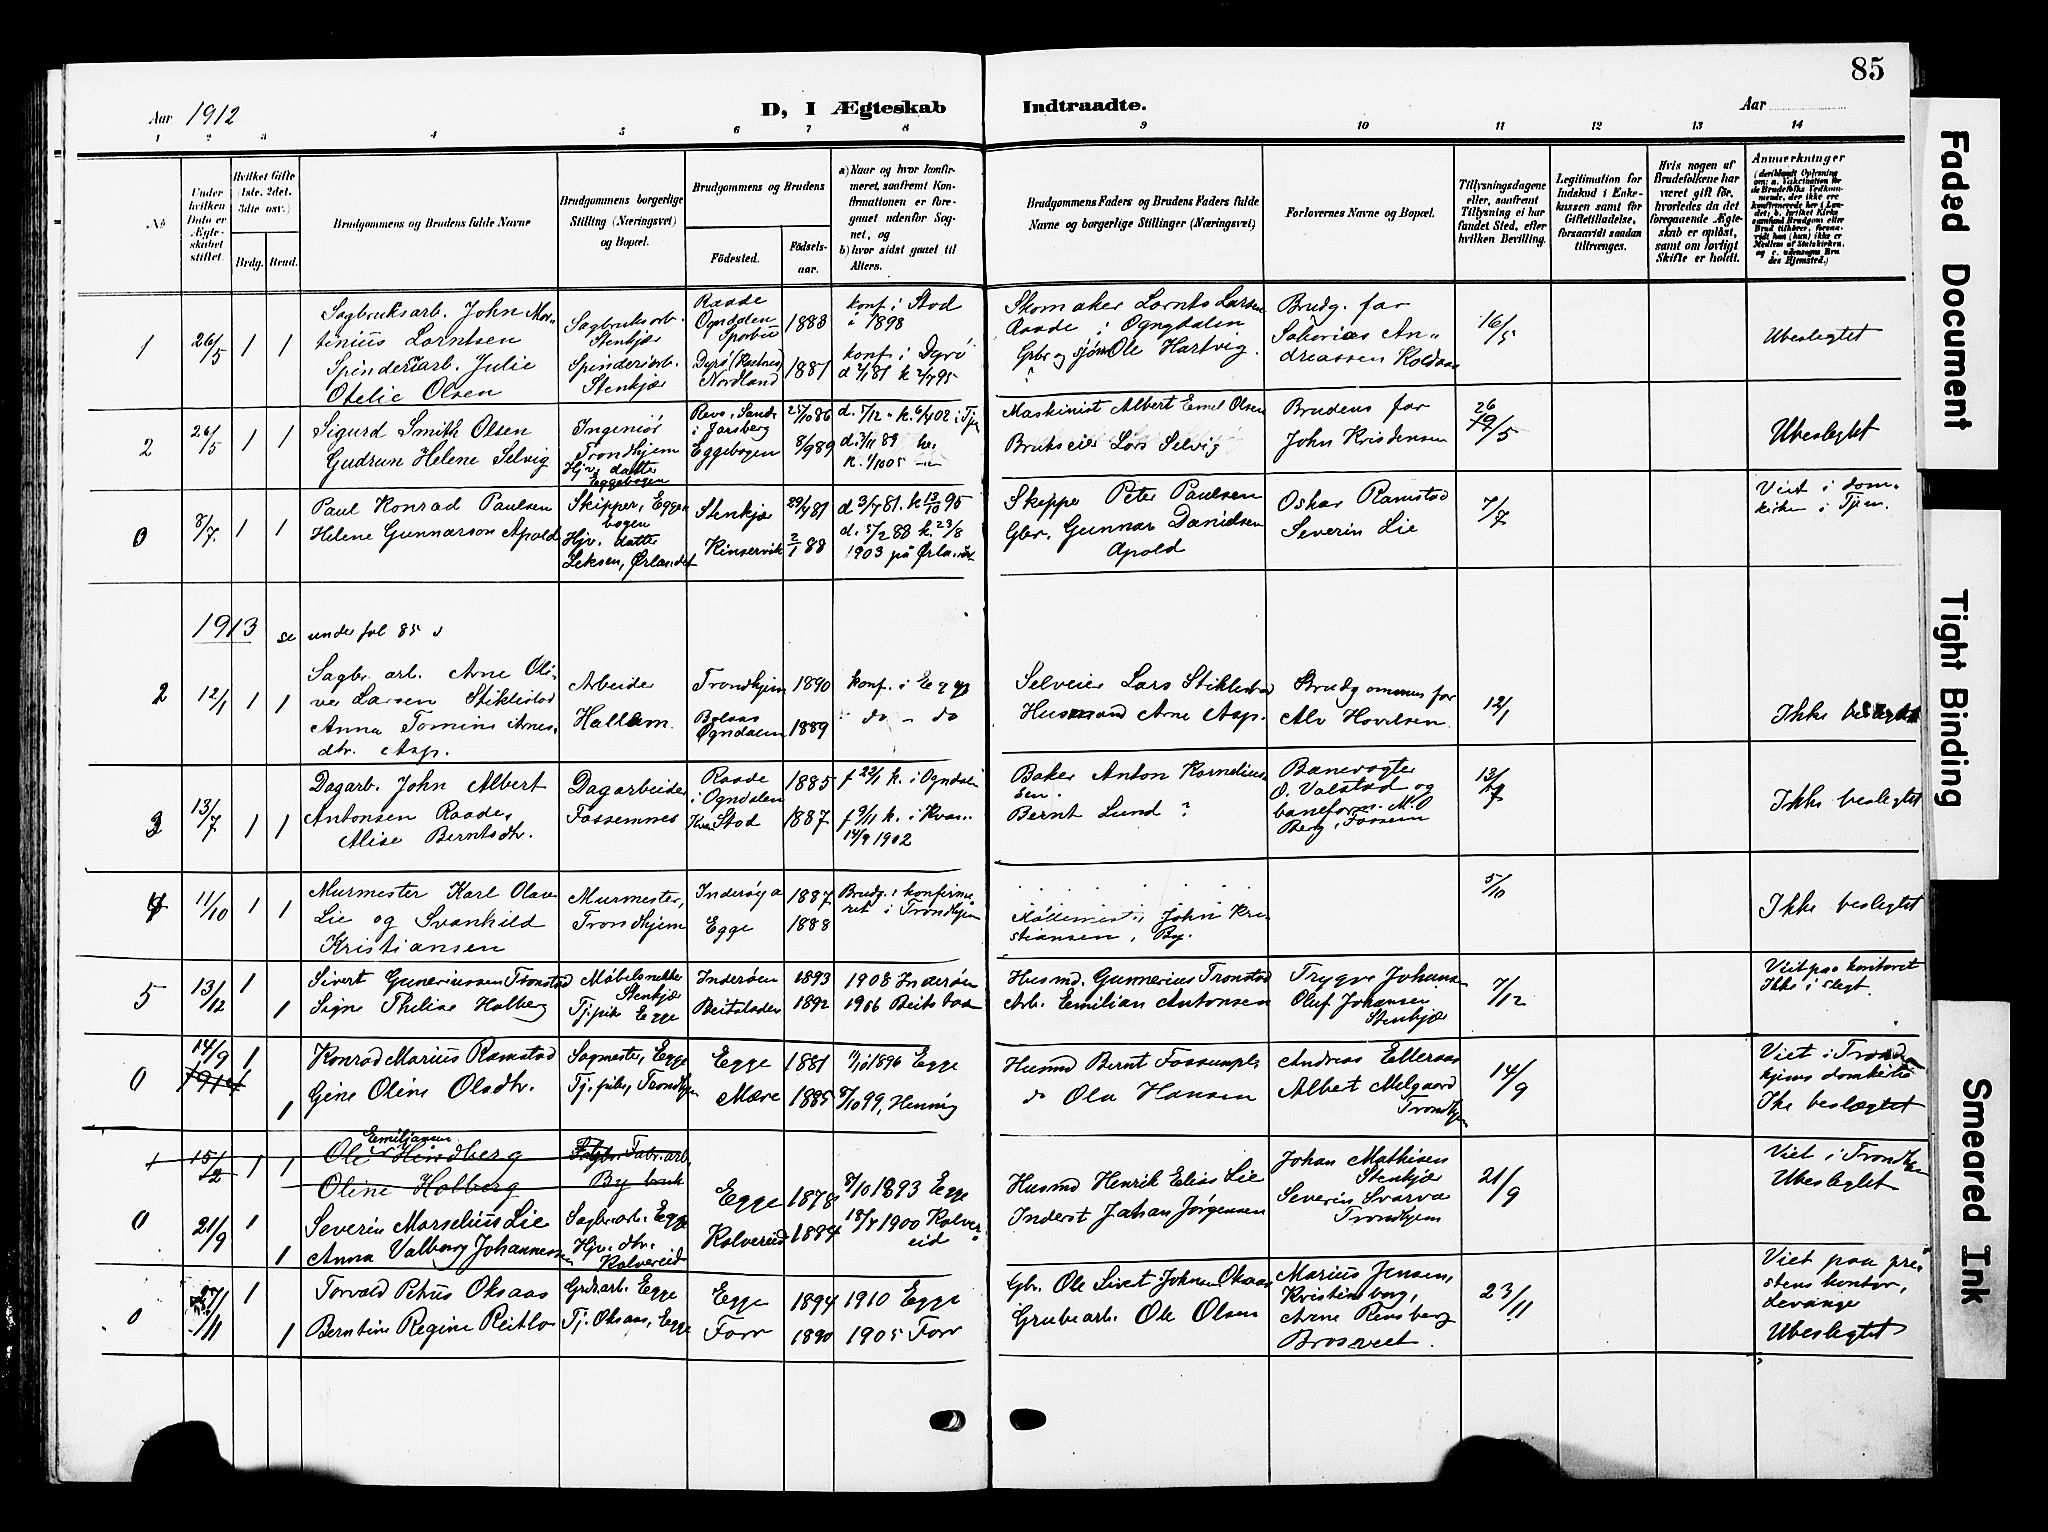 85
Aar 1912
D, I Ægteskab Indtraadte.
Aar
1 2 3 4 5 6 7 8 9 10 11 12 13 14
No
Under hvilken Dato er Ægteskabet stiftet.
Hvilket Gifte (1ste, 2det, 3die osv.)
Brdg. Brud.
Brudgommens og Brudens fulde Navne
Brudgommens borgerlige Stilling (Næringsvei) og Bopæl.
Brudgommens og Brudens
Födested.
Födselsaar.
a) Naar og hvor konfirmeret, saafremt Konfirmationen er foregaaet udenfor Sognet, og
b) hvor sidst gaaet til Alters.
Brudgommens Faders og Brudens Faders fulde Navne og borgerlige Stillinger (Næringsvei)
Forlovernes Navne og Bopæl.
Tillysningsdagene eller, saafremt Tillysning ei har fundet Sted, efter hvilken Bevilling.
Legitimation for Indskud i Enkekassen samt for Giftetilladelse, forsaavidt saadan tiltrænges.
Hvis nogen af Brudefolkene har været gift før, hvorledes da det foregaaende Ægteskab er opløst, samt om lovligt Skifte er holdt.
Anmerkninger
1 26/5 1 1
Sagbruksarb. John Mar-
tinius Lorntsen
Spinderiarb. Julie
Otelie Olsen
Sagbruksarb.
Stenkjær
Spinderiarb.
Stenkjær
Raade
Ogndalen
Sparbu
1883
Dyrö
Nordland
1881
konf. i Stod
i 1898
konf. i Dyrö
d 7/1 81 k 2/7 95
Skomaker Lornts Larsen
Raade i Ogndalen
Grbr og Ole Hartvig
?
Brudg. far
Sakarias An-
dreassen Koldaas
16/5
Ubeslegtet
2 26/5 1 1
Sigurd Smith Olsen
Gudrun Helene Selvig
Ingeniör
Trondhjem
Hjv. datter
Eggebogen
i Jarsberg
25/10 86
Eggebogen
8/9 89
Maskinist Albert Emil Olsen
Brukseier Lars Selvig
Brudens far
John Kristensen
26
19/5
Ubeslegtet
0 8/7 1 1
Paul Konrad Paulsen
Helene Gunnarson Apold
Skipper, Egge
bogen
Hjv. datter
Leksen, Ørlandet
Stenkjær
29/4 81
Kinservik
2/1 88
d 3/7 81. k 13/10 95
d. 5/2 88 k. 23/8
1903 på Ørlandet
Skipper Peter Paulsen
Gbr. Gunnar Danielsen
Apold
Oskar Ramstad
Severin Lie
7/7
Viet i dom-
kirken i Tjem.
1913 se under fol 85
2 12/1 1 1
Sagbr. arb. Arne Oli-
ver Larsen Stiklestad
Anna Tomine Arnes-
dtr. Aap.
Arbeider
Hallem.
Trondhjem 1890
Bolaas
Ogndalen 1889
konf. i Egge
do - do
Selveier Lars Stiklestad
Husmand Arne Aap.
Brudgommens far
Alv Hovelsen.
12/1
Ikke beslegtet
3 13/7 1 1
Dagarb. John Albert
Antonsen Raade,
Alise Berntsdtr.
Dagarbeider
Fossemnes
Raade
i Ogndalen
1885
Stod
1887
f 22/1 k. i Ogndalen
f 9/11 k. i Kvam
14/9 1902
Baker Anton Kornelius-
sen.
Bernt Lund ?
Banevogter
O. Valstad og
baneform. M. O
Berg, Fossem
13/7
Ikke beslegtet
4 11/10 1 1
Murmester Karl Olav
Lie og Svanhild
Kristiansen
Murmester,
Trondhjem
Inderøya 1887
Egge 1888
Brudg. konfirme-
ret i Trondhjem
Møllemester John Kri-
stiansen, By.
5/10
Ikke beslegtet
5 13/12 1 1
Sivert Guneriussen Tronstad
Signe Theline Holberg
Møbelsnekker
Stenkjær
Tj.pike Egge
Inderøen 1893
Beitstaden 1892
1908 Inderøen
1906 Beitstad
Husmd. Gunnerius Tronstad
Arb. Emilian Antonsen
Trygve Johansen
Oluf Johansen
Stenkjær
7/12
Viet paa kontoret
Ikke i slegt.
0 14/9 1914 1 1
Konrad Marius Ramstad
Gine Oline Olsdtr.
Sagmester, Egge
Tj.pike, Trondhjem
Egge 1881
Mære 1885
1896 Egge
8/10 99, Henning
Husmd Bernt Fossumpl.
do Ola Hansen
Andreas Elleraas
Albert Melgaard
Trondhjem
14/9
Viet i Trond-
hjems domkirke
Ike beslægtet
1 15/2 1 1
Emiljansen
Ole Hindberg
Oline Holberg
Fabr. arb.
By bruk
0 21/9 1 1
Severin Marselius Lie
Anna Valborg Johannessen
Sagbr.arb. Egge
Hjv. dtr.
Kolvereid
Egge 1878
Kolvereid 1884
8/10 1893 Egge
18/7 1900 Kolver-
eid
Husmd Henrik Elias Lie
Inderst Johan Jørgensen
Johan Mathisen
Stenkjær
Severin Svarva
Trondhjem
21/9
Viet i Trondhjem
Ubeslegtet
0 27/11 1 1
Torvald Petrus Oksaas
Berntine Regine Reitlo
Grdsarb. Egge
Tj. Oksaas, Egge
Egge 1894
Forr 1890
1910 Egge
1905 Forr
Gbr. Ole Sivert Johnsen Oksaas
Grubearb. Ole Olsen
Marius Jensen,
Kristinsborg,
Arne Rensberg
Brosveet.
23/11
Viet paa pre-
stens kontor,
Levange
Ubeslegtet
Faded Document
Tight Binding
Smeared Ink